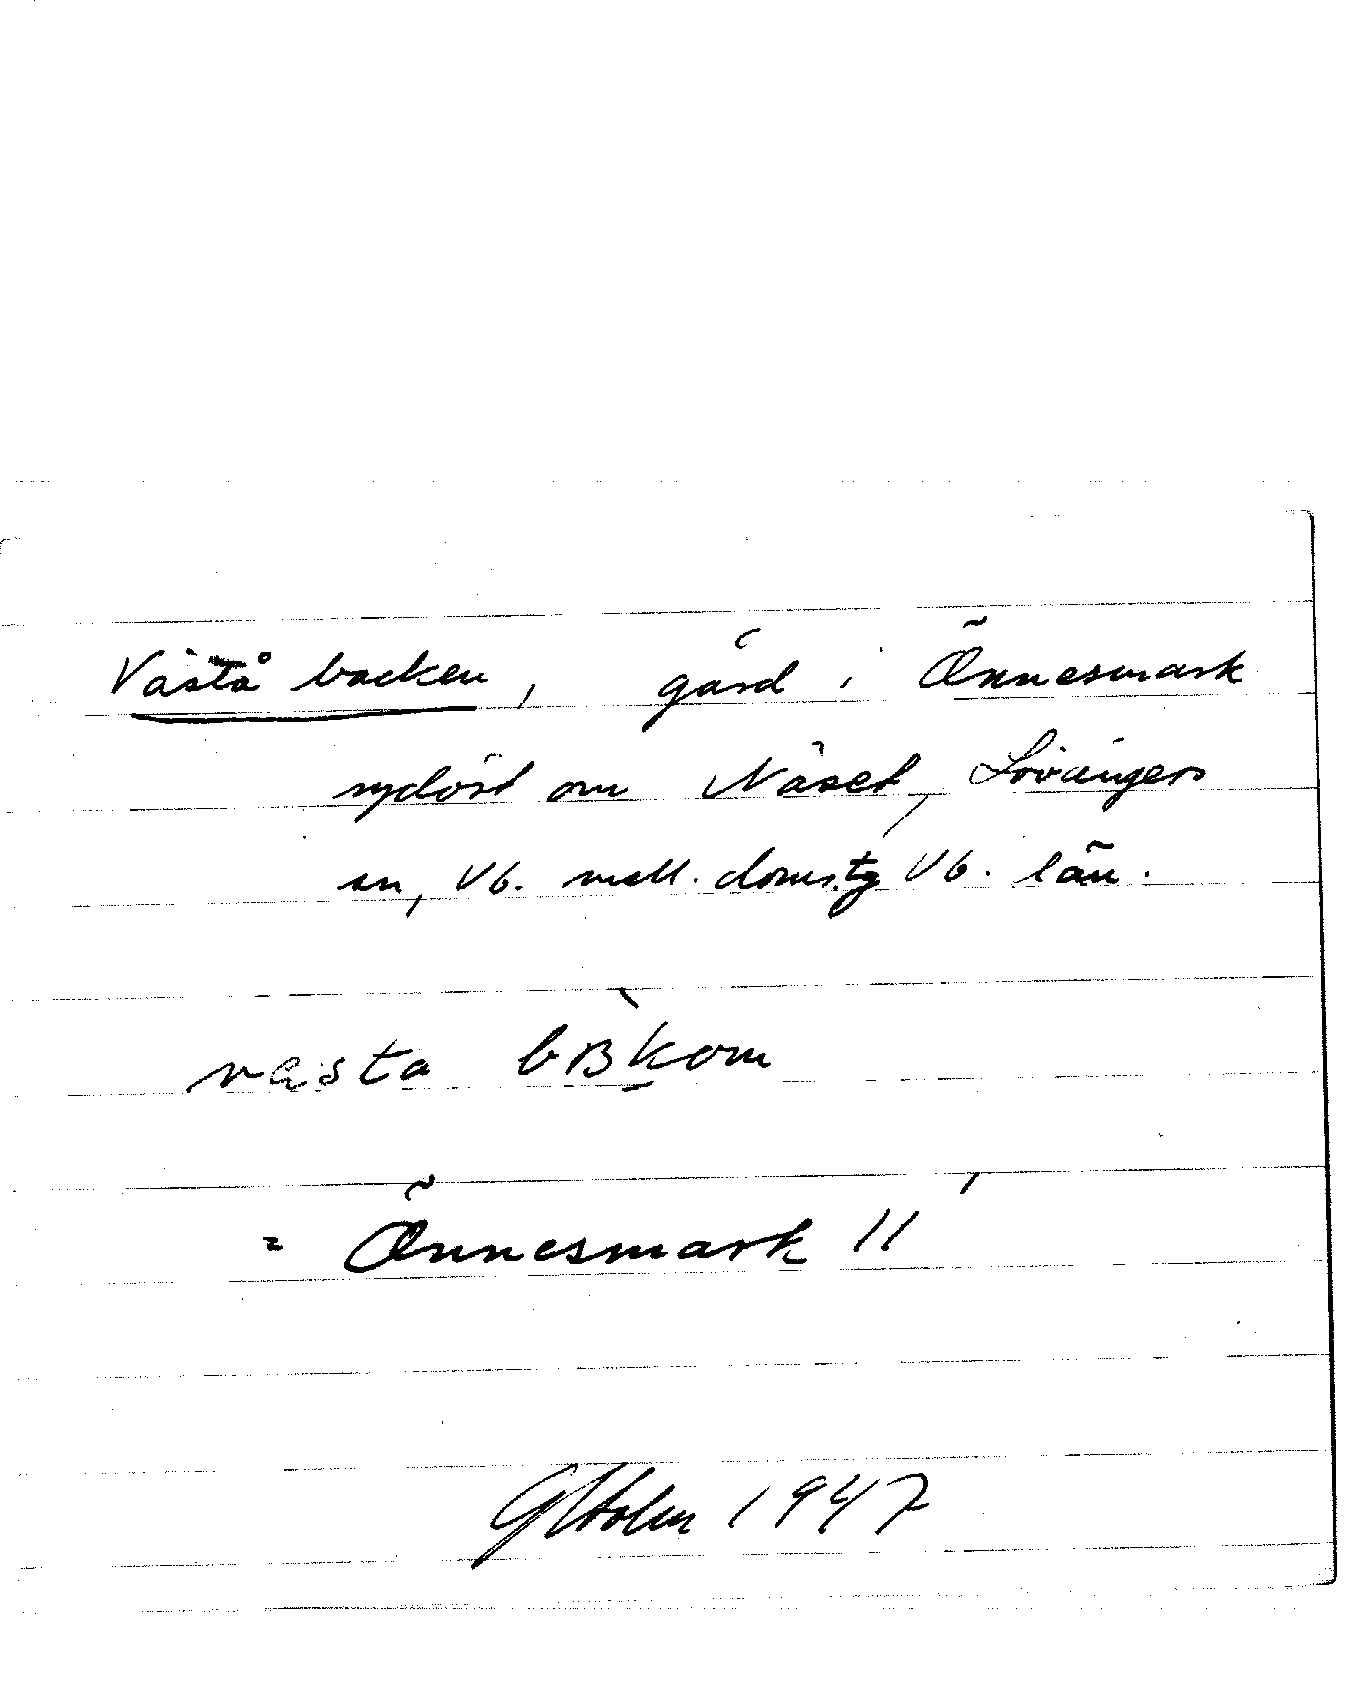 Västå backen, gård i Önnesmark
sydöst om Näset, Lövångers
sn, Vb. mell. doms.tg Vb. län.
vasta bBkom
= Önnesmark 11
GHolm 1947